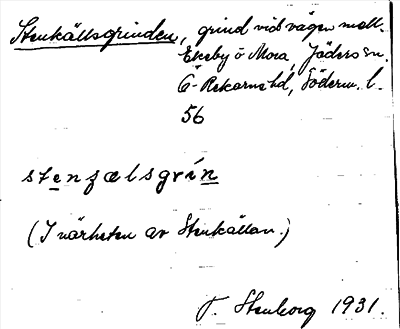 Stenkällsgrinden, grind vid vägen mell.
Ekeby o Mora, Jäders sn.
Ö-Rekarne hd, Söderm. l.
56
stenʒælsgrín
(I närheten av Stenkällan.)
F. Stenborg 1931.